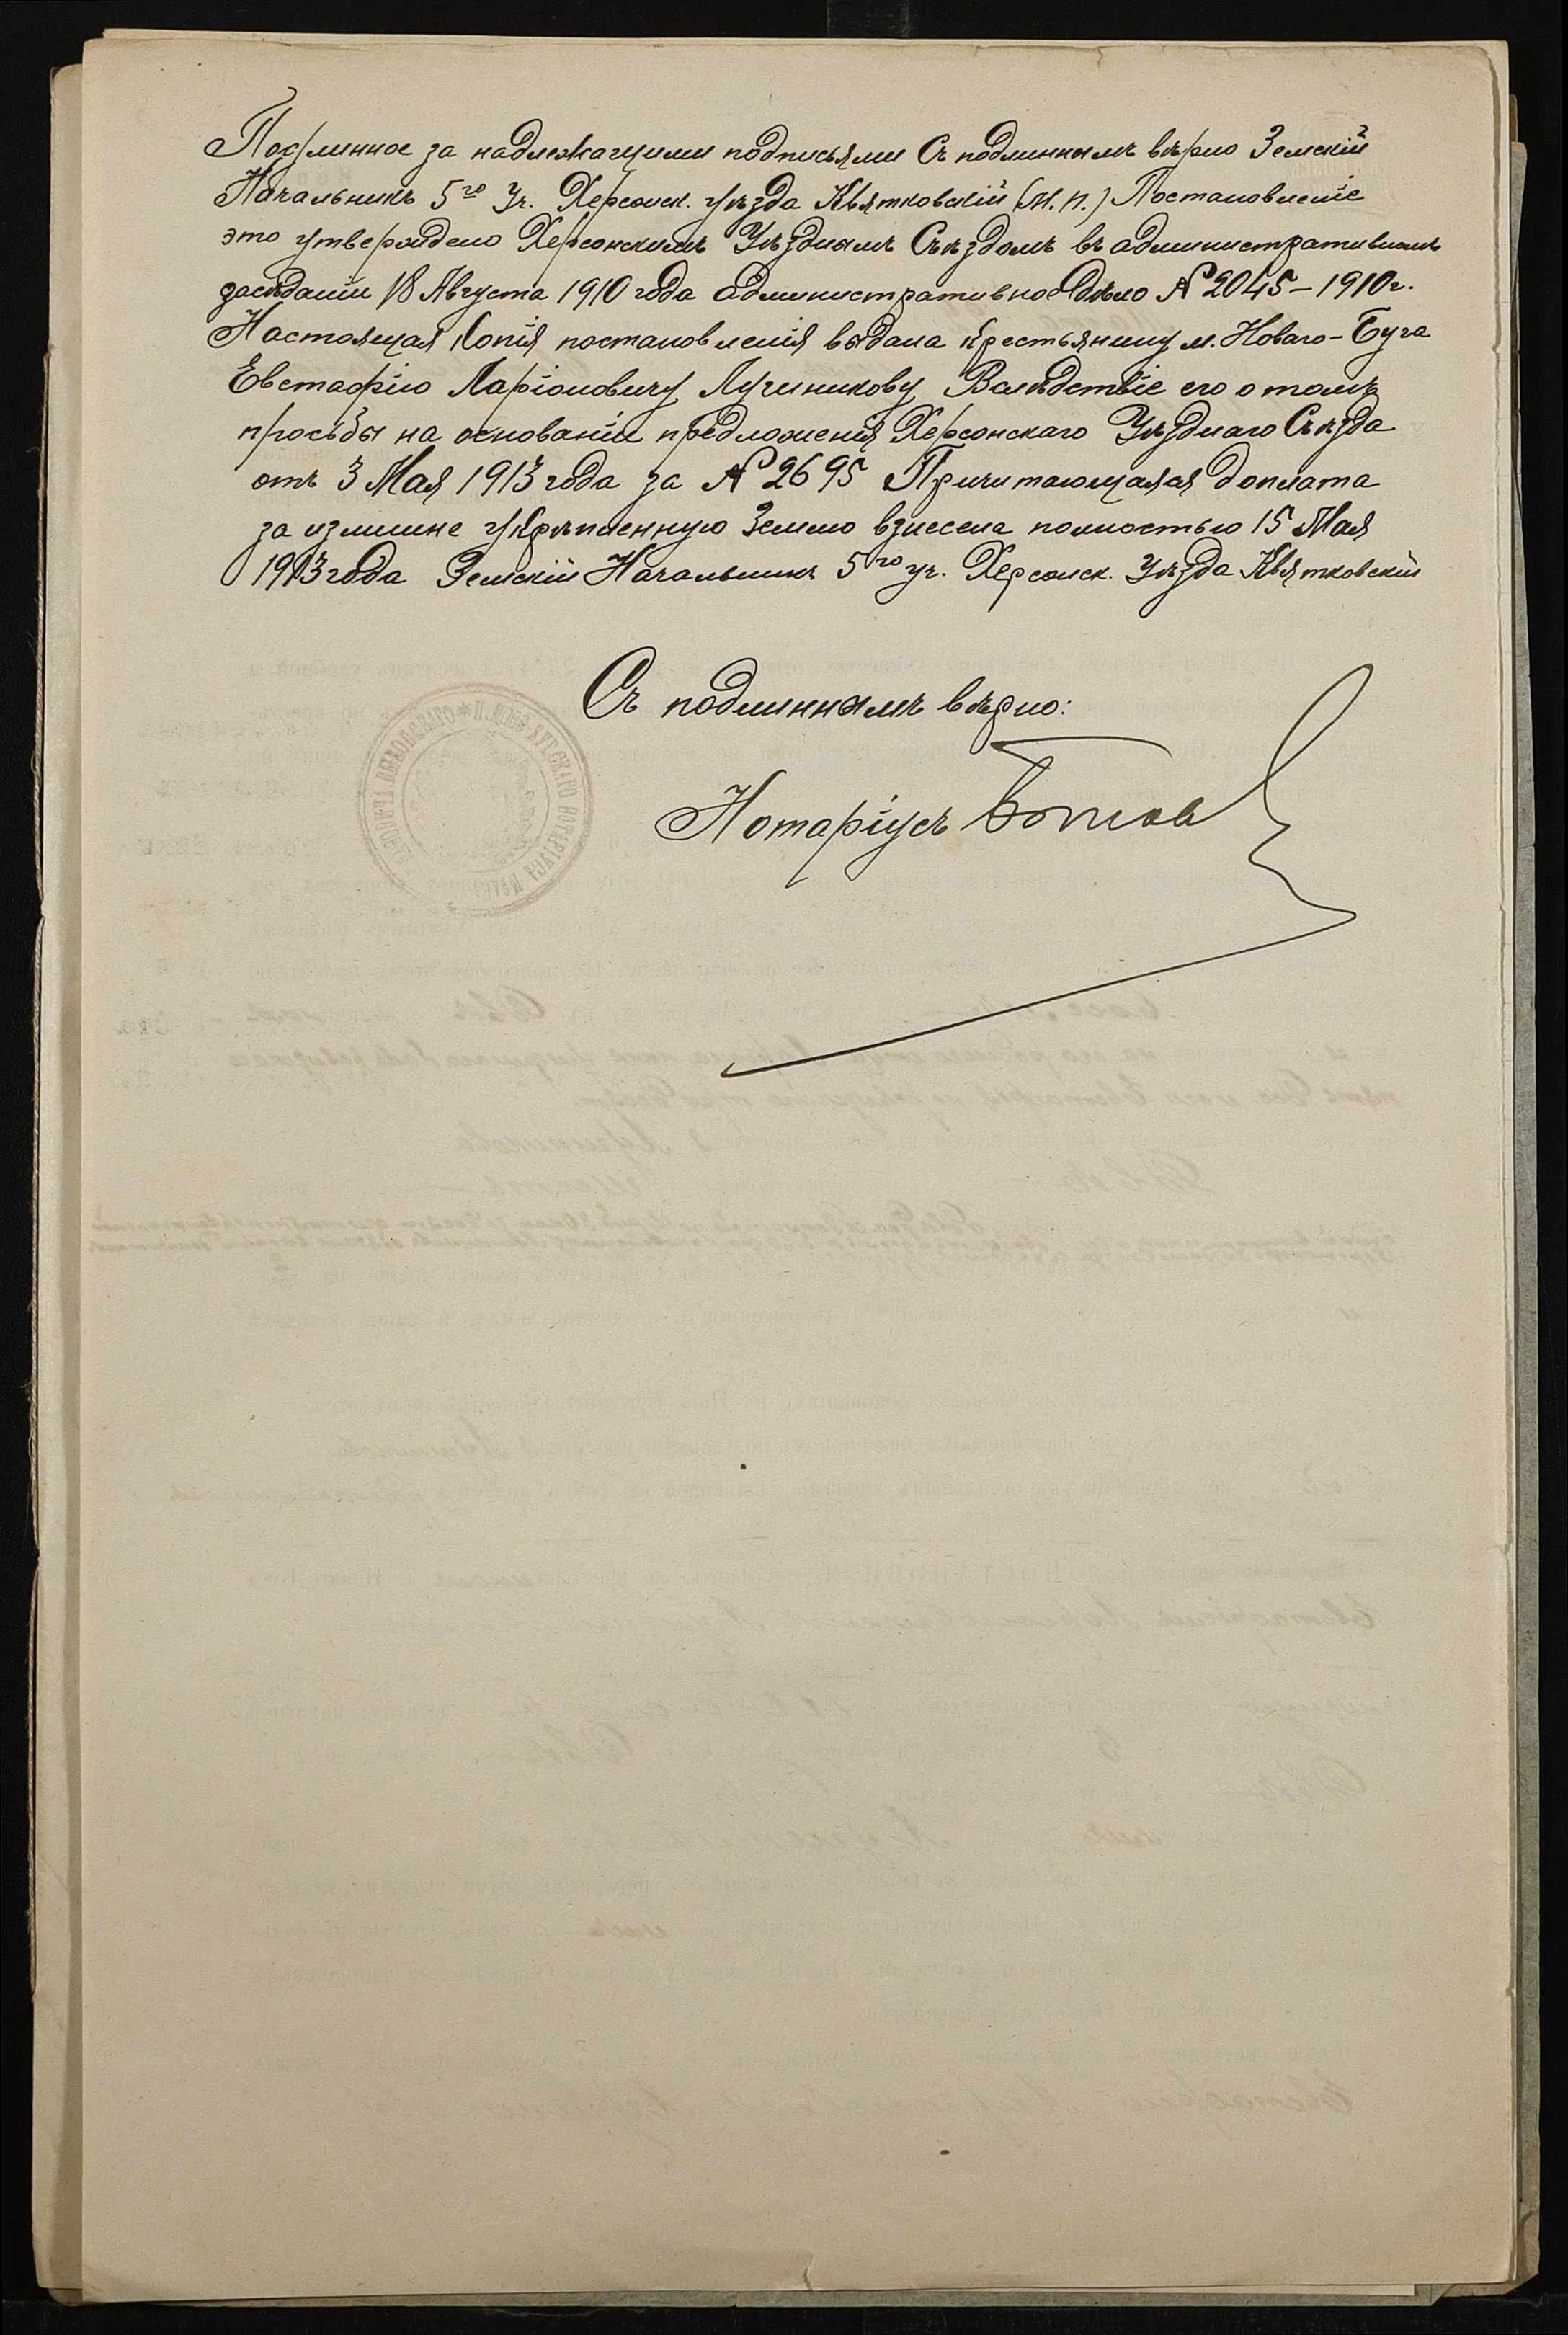 Подлинное за надлежащими подписями Съ подлиннымъ вѣрно Земскій
Начальникъ 5го Уч. Херсонск. уѣзда Квятковскій (М. П.) Постановленіе
это утверждено Херсонскимъ Уѣзднымъ Съѣздомъ въ административномъ
засѣданіи 18 Августа 1910 года административное дѣло № 2045-1910 г.
Настоящая Копія постановленія выдана Крестьянину м. Новаго-Буга
Евстафію Ларіоновичу Лучникову Вслѣдствіе его о томъ
просьбы на основаніи предложенія Херсонскаго Уѣзднаго Съѣзда
отъ 3 Мая 1913 года за № 2695 Причитающаяся доплата
за излишне укрѣпленную Землю взнесена полностью 15 Мая
1913 года Земскій Начальникъ 5го уч. Херсонск. Уѣзда Квятковскій
Съ подлиннымъ вѣрно:
Нотаріусъ